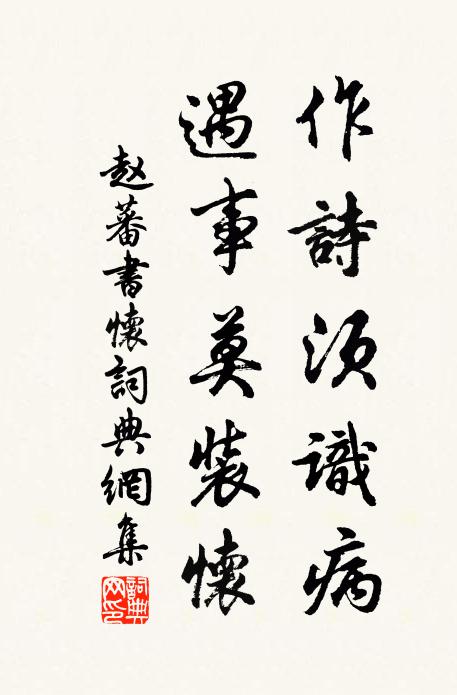 作詩須識病
遇事莫裝懷
赵蕃書懷詞典網集
詞典網印